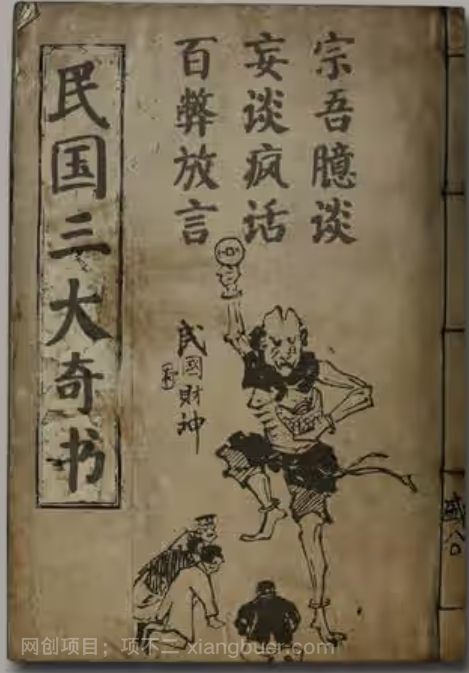 民国三大奇书
宗吾臆谈
妄谈疯话
百弊放言
民國財神
网创项目；项不二 xiangbuer.com